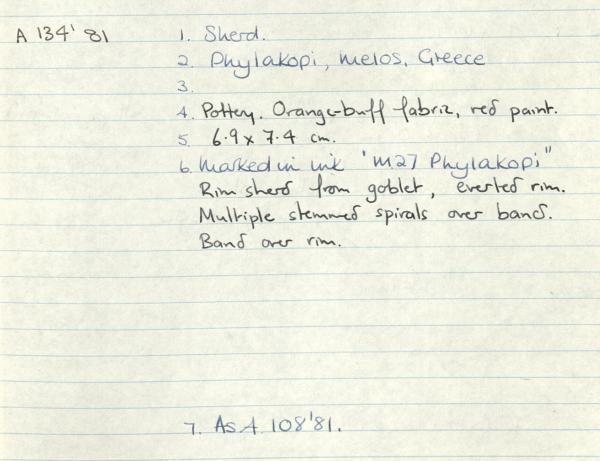 A 134' 81
1. Sherd.
2. Phylakopi, Melos, Greece
3.
4. Pottery. Orange-buff fabric, red paint.
5 6.9 x 7.4 cm.
6. Marked in ink 'M27 Phylakopi"
Rim sherd from goblet, everted rim.
Multiple stemmed spirals over band.
Band over rim.
7. As A 108'81.